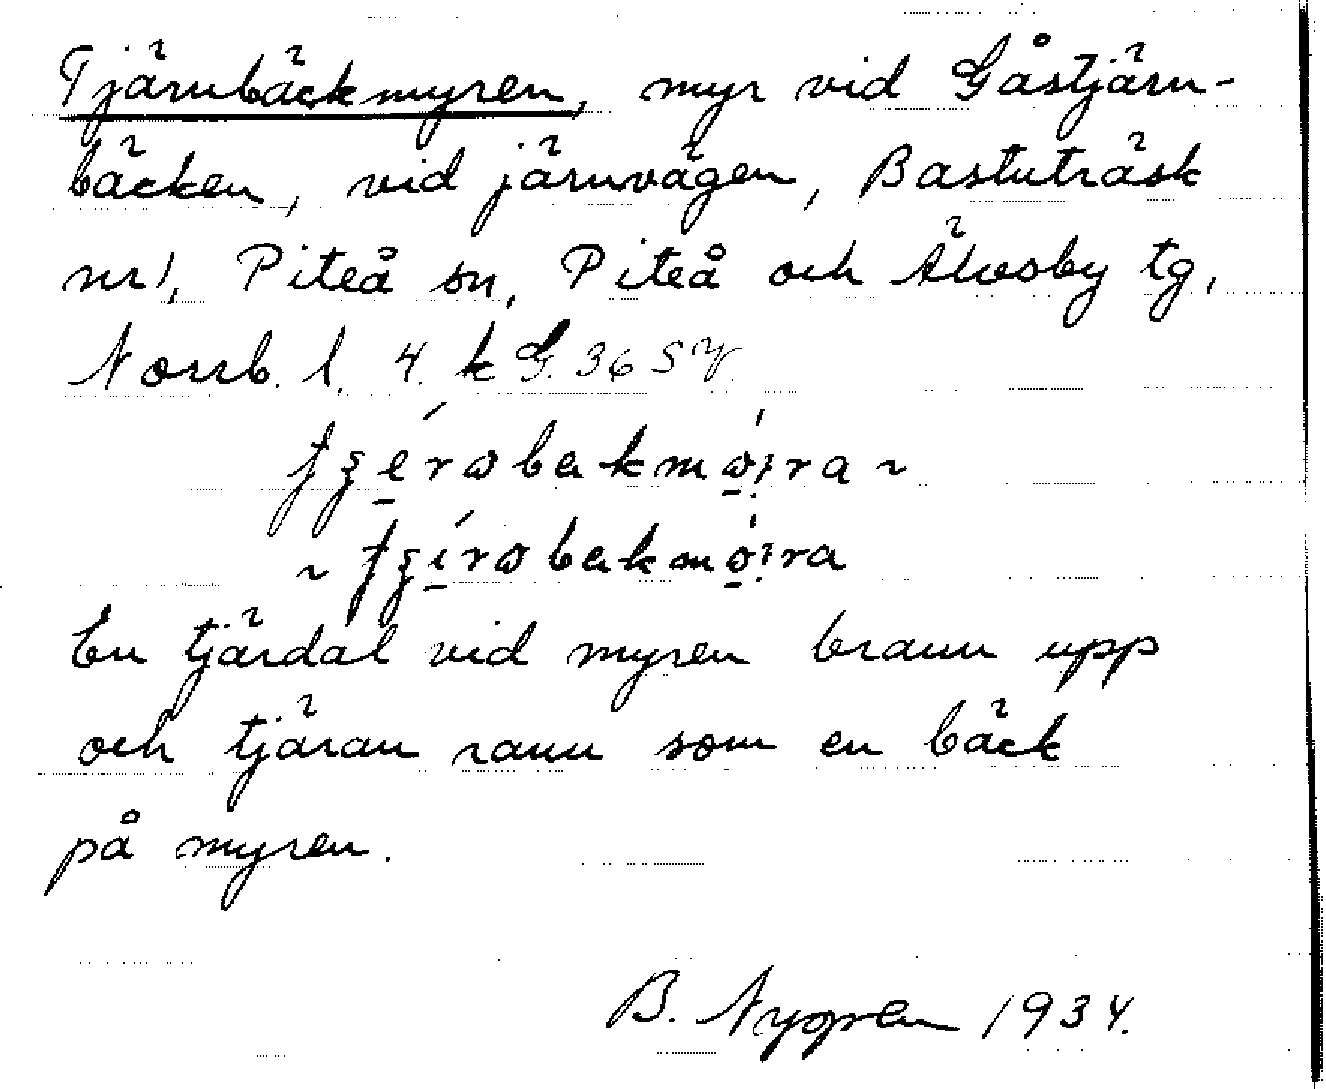 Tjärnbäckmyren, myr vid Gåstjärn-
bäcken, vid järnvägen, Bastuträsk
nr 1, Piteå sn, Piteå och Älvsby tg,
Norrb. l. 4. k G. 36 SV
En tjärdal vid myren brann upp
och tjäran rann som en bäck
på myren.
B. Nygren 1934.